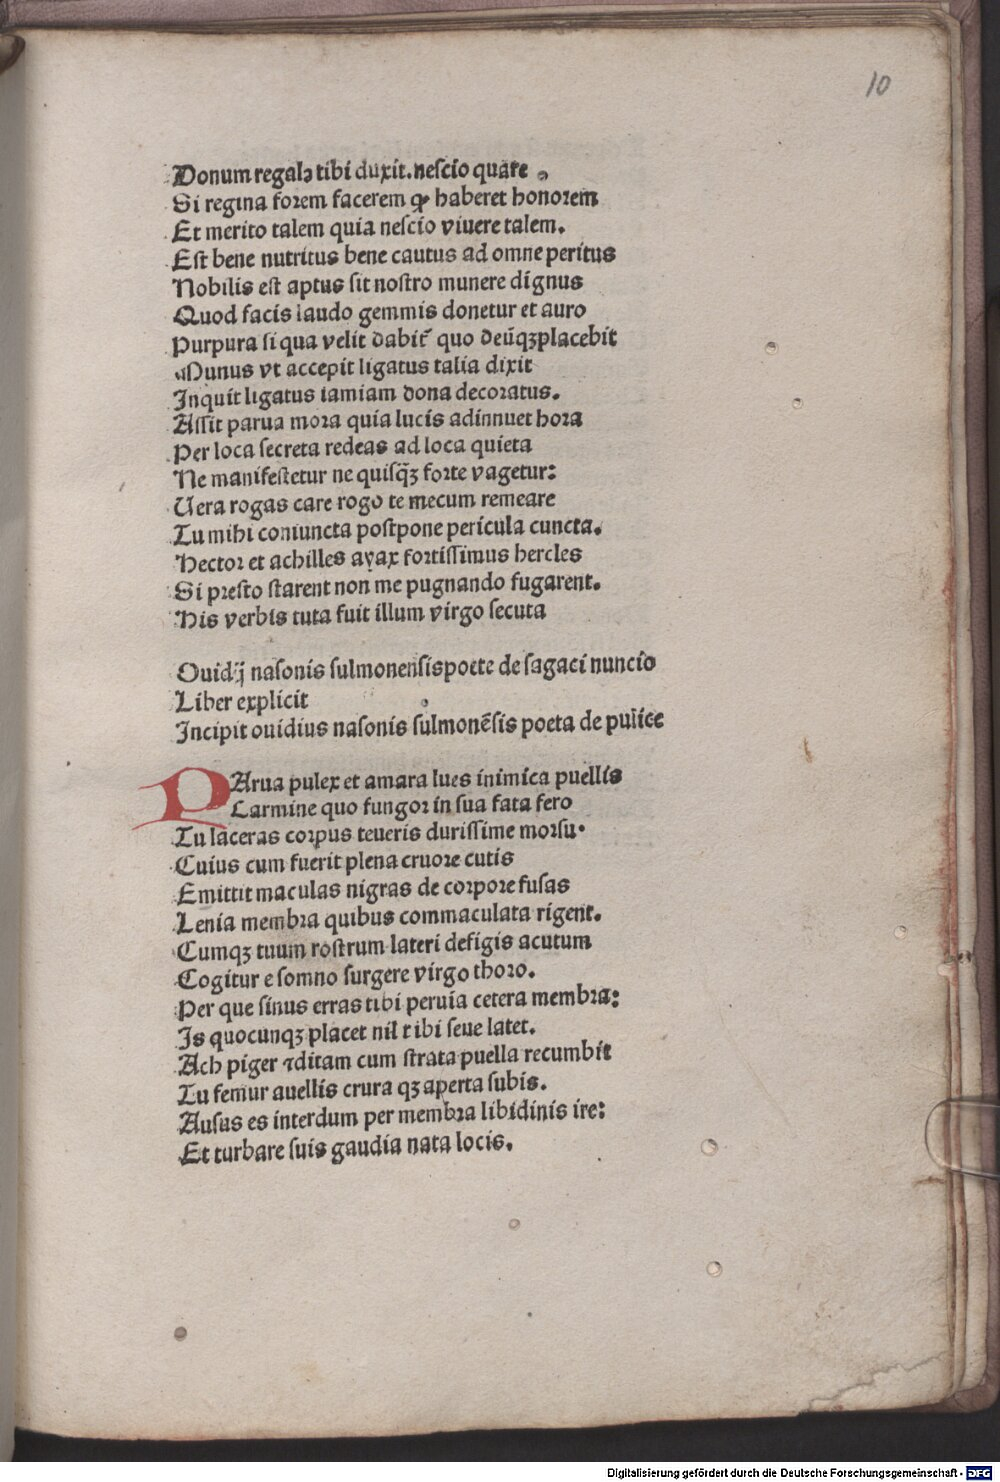 10
Donum regalꝫ tibi duxit. neſcio quare
Si regina forem facerem ꝙ haberet honorem
Et merito talem quia neſcio viuere talem.
Eſt bene nutritus bene cautus ad omne peritus
Nobilis eſt aptus ſit noſtro munere dignus
Quod facis laudo gemmis donetur et auro
Purpura ſi qua velit dabit᷑ quo deūqꝫ placebit
Munus vt accepit ligatus talia dixit
Inquit ligatus iamiam dona decoratus.
Aſſit parua mora quia lucis adinnuet hora
Per loca ſecreta redeas ad loca quieta
Ne manifeſtetur ne quiſq̄ꝫ forte vagetur:
Uera rogas care rogo te mecum remeare
Tu mihi coniuncta poſtpone pericula cuncta.
Hector et achilles ayax fortiſſimus hercles
Si preſto ſtarent non me pugnando fugarent.
His verbis tuta fuit illum virgo ſecuta
Ouidij naſonis ſulmonenſis poete de ſagaci nuncio
Liber explicit
Incipit ouidius naſonis ſulmonēſis poeta de pulice
PArua pulex et amara lues inimica puellis
Carmine quo fungor in ſua fata fero
Tu laceras corpus teueris duriſſime morſu·
Cuius cum fuerit plena cruore cutis
Emittit maculas nigras de corpore fuſas
Lenia membra quibus commaculata rigent.
Cumqꝫ tuum roſtrum lateri defigis acutum
Cogitur e ſomno ſurgere virgo thoro.
Per que ſinus erras tibi peruia cetera membra:
Is quocunqꝫ placet nil tibi ſeue latet.
Ach piger ꝛditam cum ſtrata puella recumbit
Tu femur auellis crura qꝫ aperta ſubis.
Auſus es interdum per membra libidinis ire:
Et turbare ſuis gaudia nata locis.
Digitalisierung gefördert durch die Deutsche Forschungsgemeinschaft - DFG